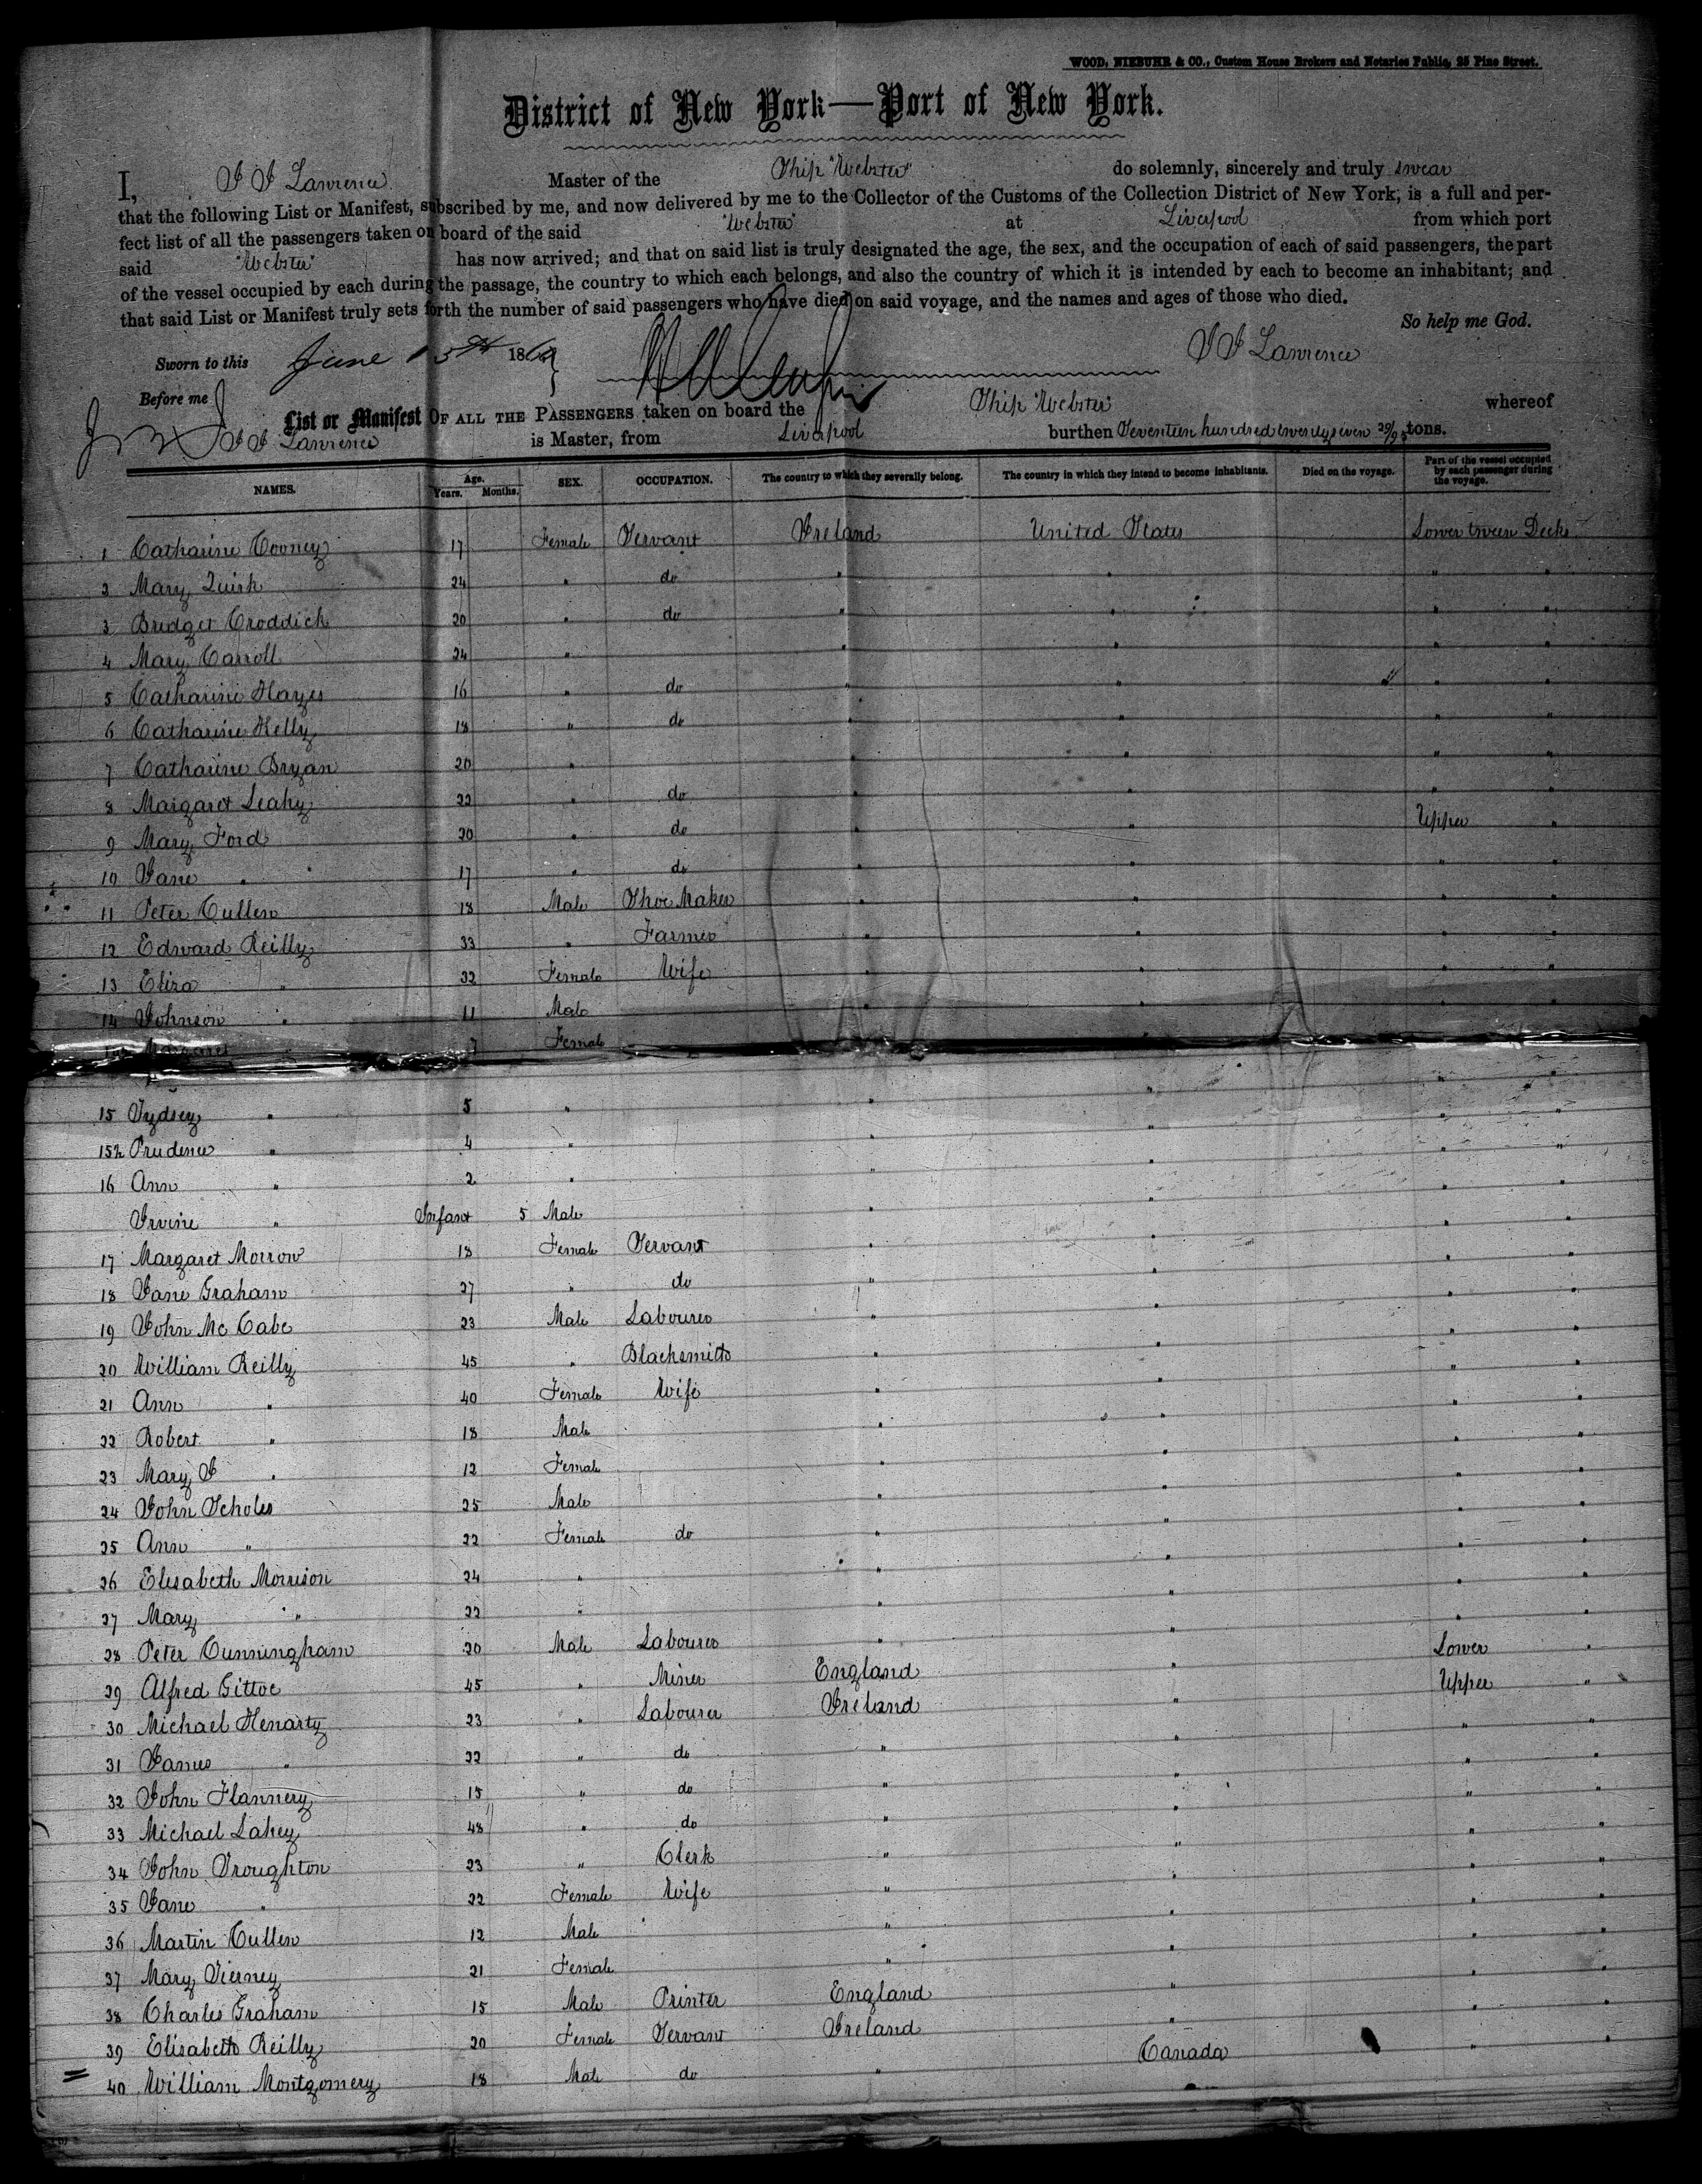 WOOD, NIEBUHR & CO., Custom House Brokers and Notaries Public, 25 Pine Street.
District of New York—Port of New York.
I, J J Lawrence Master of the Ship "Webster" do solemnly, sincerely and truly swear
that the following List or Manifest, subscribed by me, and now delivered by me to the Collector of the Customs of the Collection District of New York, is a full and per-
fect list of all the passengers taken on board of the said "Webster" at Liverpool from which port
said "Webster" has now arrived; and that on said list is truly designated the age, the sex, and the occupation of each of said passengers, the part
of the vessel occupied by each during the passage, the country to which each belongs, and also the country of which it is intended by each to become an inhabitant; and
that said List or Manifest truly sets forth the number of said passengers who have died on said voyage, and the names and ages of those who died.
So help me God.
Sworn to this June 186 J J Lawrence
Before me
List or Manifest OF ALL THE PASSENGERS taken on board the Ship "Webster" whereof
J J Lawrence is Master, from Liverpool burthen Seventeen hundred twenty seven 29/95 tons.
NAMES. Age. Years. Months. SEX. OCCUPATION. The country to which they severally belong. The country in which they intend to become inhabitants. Died on the voyage. Part of the vessel occupied by each passenger during the voyage.
1 Catharine Cooney 17 Female Servant Ireland United States Lower tween Decks
2 Mary Quirk 24 " do " " " "
3 Bridget Croddick 20 " do " " " "
4 Mary Carroll 24 " " " " "
5 Catharine Hayes 16 " do " " " "
6 Catharine Kelly 18 " do " " " "
7 Catharine Bryan 20 " " " " "
8 Margaret Leahy 22 " do " " " "
9 Mary Ford 20 " do " " Upper "
10 Jane " 17 " do " " " "
11 Peter Cullen 18 Male Shoe Maker " " " "
12 Edward Reilly 33 " Farmer " " " "
13 Eliza " 32 Female Wife " " " "
14 Johnson " 11 Male " " " "
Margaret " 7 Female "
15 Sydney " 5 " " " " "
15½ Prudence " 4 " " " " "
16 Ann " 2 " " " " "
Irvine " Infant 5 Male " " " "
17 Margaret Morrow 18 Female Servant " " " "
18 Jane Graham 27 " do " " " "
19 John Mc Cabe 23 Male Labourer " " " "
20 William Reilly 45 " Blacksmith " " " "
21 Ann " 40 Female Wife " " " "
22 Robert " 18 Male " " " "
23 Mary J " 12 Female " " " "
24 John Scholes 25 Male " " " "
25 Ann " 22 Female do " " " "
26 Elisabeth Morrison 24 " " " " "
27 Mary " 22 " " " " "
28 Peter Cunningham 20 Male Labourer " " Lower "
29 Alfred Gittoe 45 " Miner England " Upper "
30 Michael Henarty 23 " Labourer Ireland " " "
31 James " 22 " do " " " "
32 John Flannery 15 " do " " " "
33 Michael Lahey 48 " do " " " "
34 John Troughton 23 " Clerk " " " "
35 Jane " 22 Female Wife " " " "
36 Martin Cullen 12 Male " " " "
37 Mary Tierney 21 Female " " " "
38 Charles Graham 15 Male Printer England " " "
39 Elisabeth Reilly 20 Female Servant Ireland " " "
40 William Montgomery 18 Male do " Canada